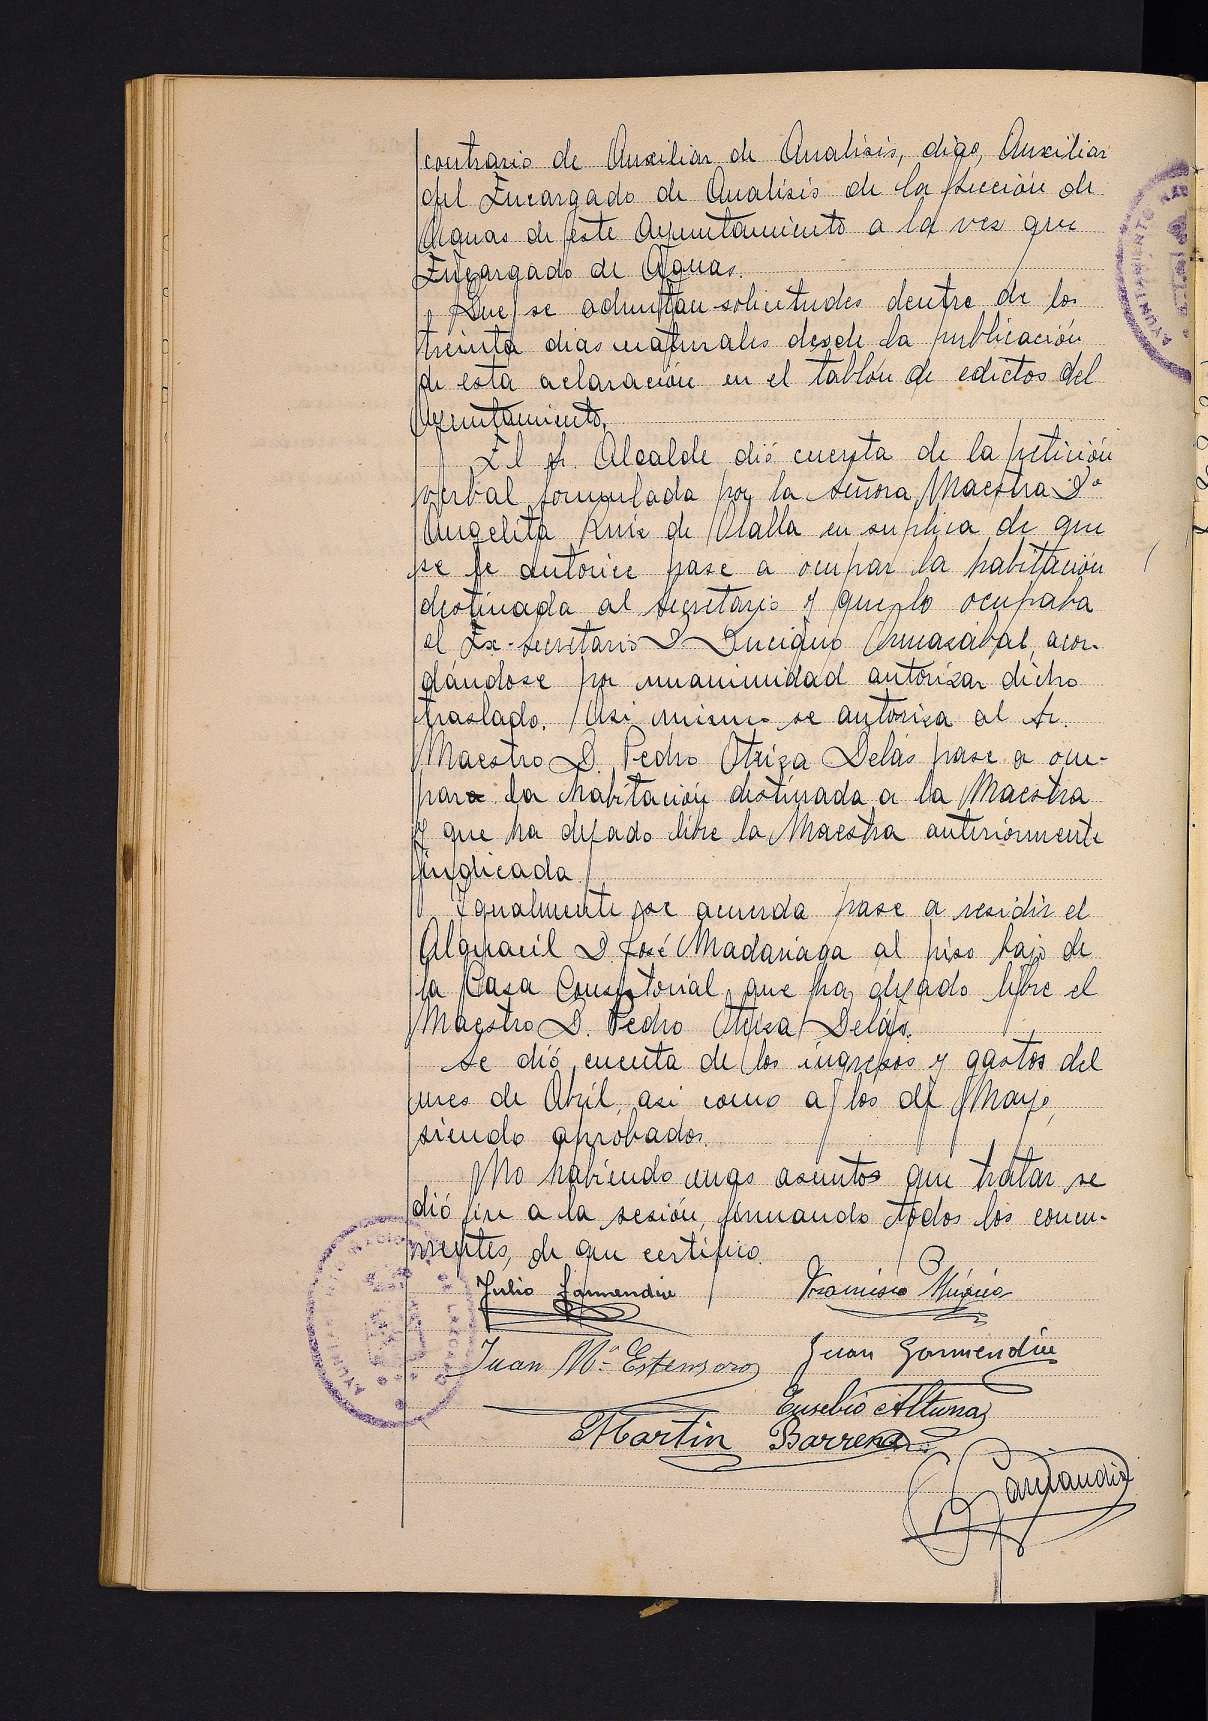 contrario de Auxiliar de Analisis, digo, Auxiliar
del Encargado de Analisis de la Sección de
Aguas de este Ayuntamiento a la vez que
Encargado de Aguas.
Que se admitan solicitudes dentro de los
treinta dias naturales desde la publicación
de esta aclaración en el tablón de edictos del
Ayuntamiento.
El Sr. Alcalde dió cuenta de la petición
verbal formulada por la Señora Maestra Dª
Angelita Ruiz de Olalla en suplica de que
se le autorice pase a ocupar la habitación
destinada al Secretario y que lo ocupaba
el Ex-Secretario D. Ormazábal, acor-
dándose por unanimidad autorizar dicho
traslado. Asi mismo se autoriza al Sr.
Maestro D. Pedro Otriza Delás pase a ocu-
para la habitación destinada a la Maestra
y que ha dejado libre la Maestra anteriormente
indicada
Igualmente se acuerda pase a residir el
Alguacil D. José Madariaga al piso bajo de
la Casa Consistorial que ha dejado libre el
Maestro D. Pedro Otriza Delás.
Se dió cuenta de los ingresos y gastos del
mes de Abril, asi como a los de Mayo,
siendo aprobados.
No habiendo mas asuntos que tratar se
dió fin a la sesión, firmando todos los concu-
rrentes, de que certifico.
Julio Garmendia Francisco Múgica
Juan Mª Estensoro Juan Garmendia
Eusebio Altuna
Martin Barrena
AYUNTAMIENTO
AYUNTAMIENTO